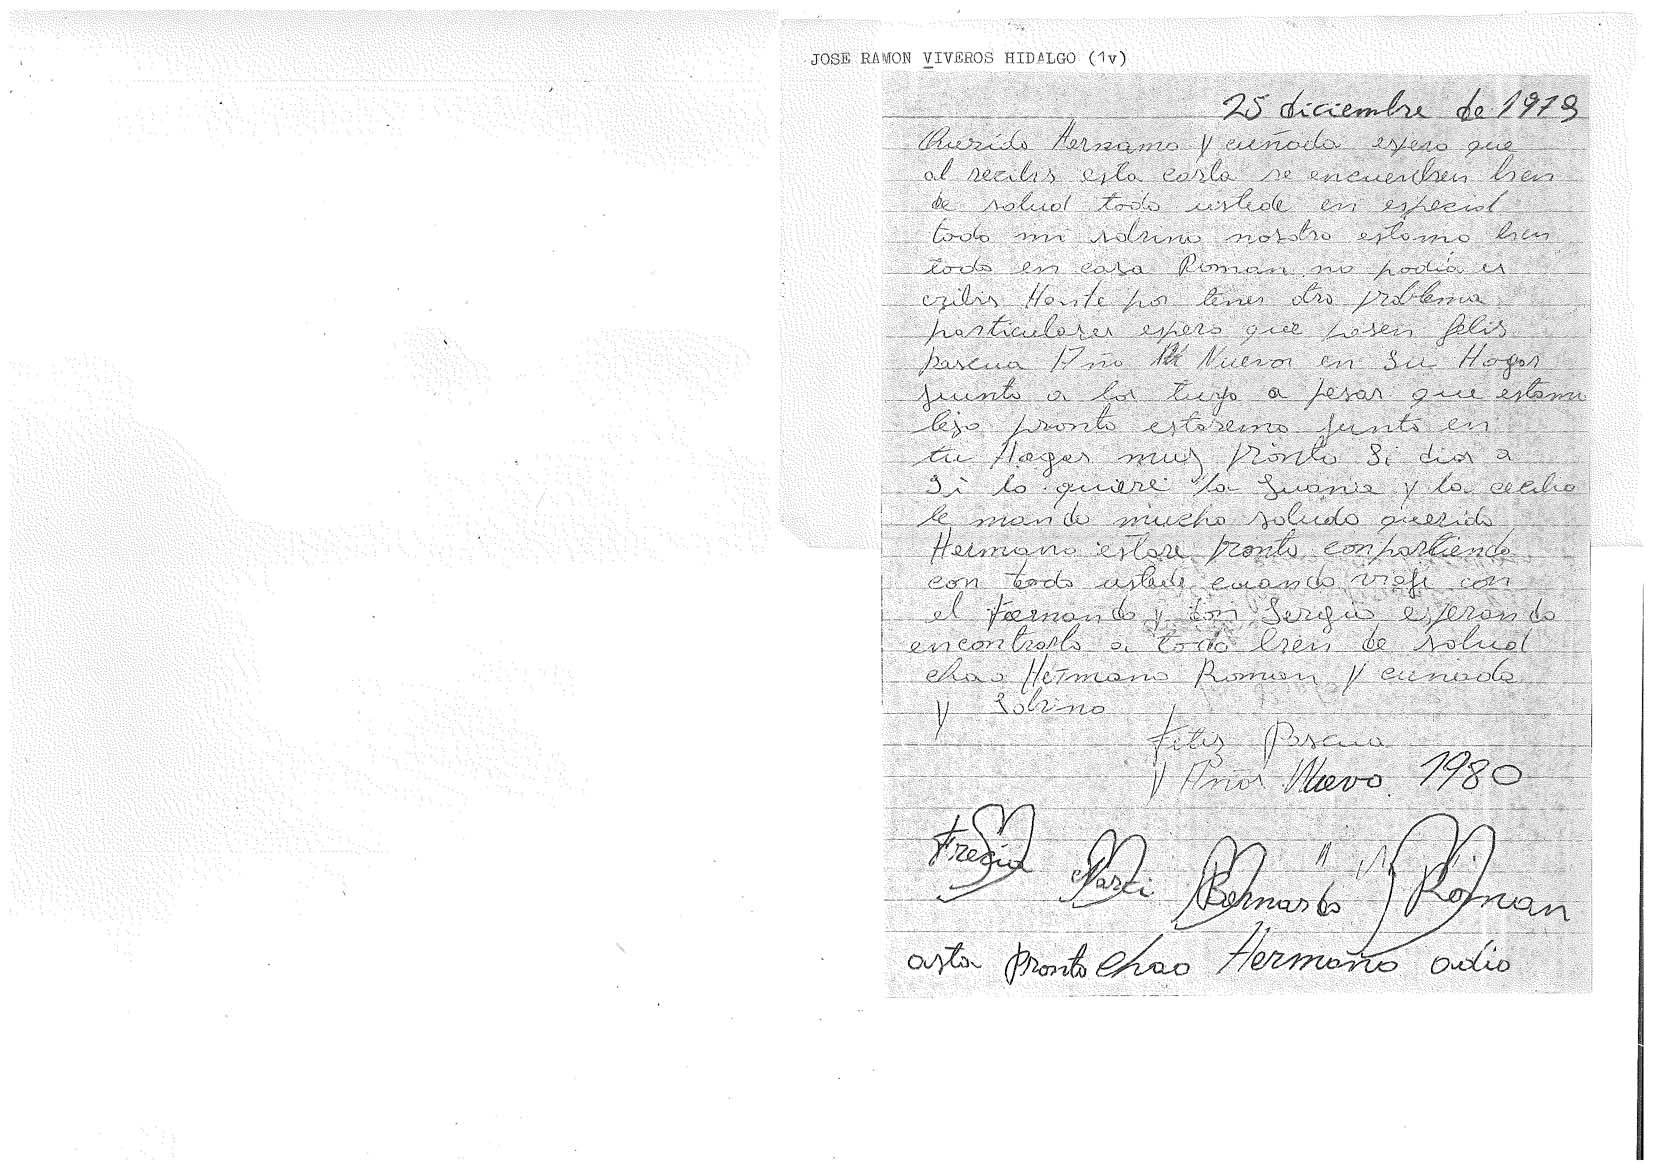 JOSE RAMON VIVEROS HIDALGO (1v)
25 diciembre de 1979
Querido Hermano y cuñada espero que
al recibir esta carta se encuentren bien
de salud todo ustede en especial
todo mi sobrino nosotro estamo bien
todo en casa Roman no podia es
cribir Hante por tener otro problema
particulares espero que pasen felis
pascua Año Nuevo en su Hogar
junto a los tuyo a pesar que estamo
lejo pronto estaremo junto en
tu Hogar muy pronto si dios a
si lo quiere la Juana y la cecilia
le mando mucho saludo querido
Hermano estare pronto conpartiendo
con todo ustede cuando viaje con
el Fernando y don Sergio esperando
encontrarlo a todo bien de salud
chao Hermano Roman y cuñada
y Sobrino
Feliz Pascua
y Año Nuevo 1980
Fresia Narci Bernardo Roman
asta pronto chao Hermano adio